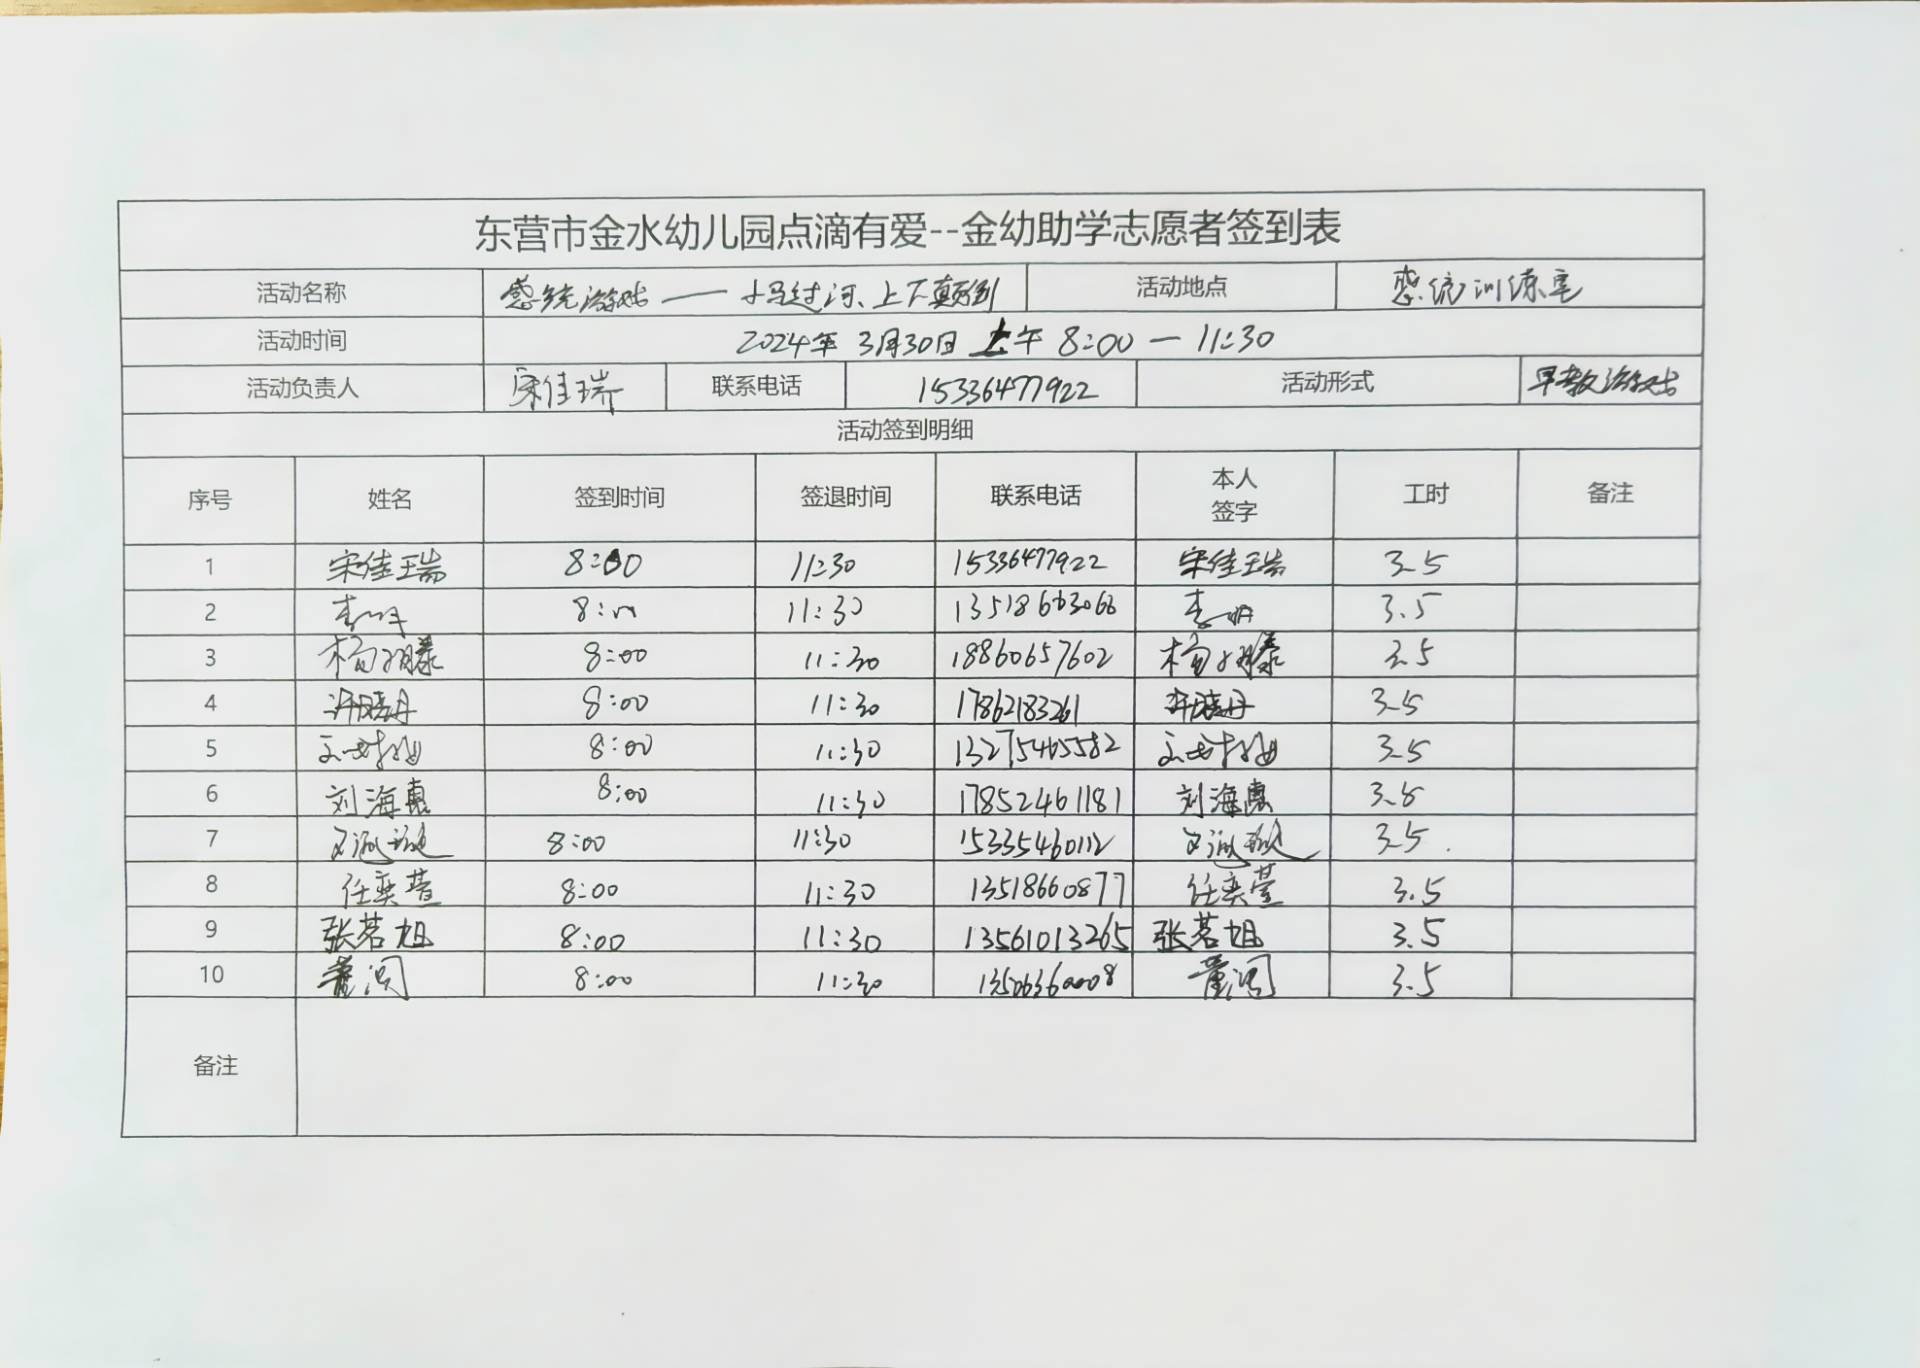 东营市金水幼儿园点滴有爱--金幼助学志愿者签到表
活动名称 感统游戏——小马过河、上下颠倒 活动地点 感统训练室
活动时间 2024年3月30日 上午 8:00 — 11:30
活动负责人 宋佳瑞 联系电话 15336477922 活动形式 早教游戏
活动签到明细
序号 姓名 签到时间 签退时间 联系电话 本人签字 工时 备注
1 宋佳瑞 8:00 11:30 15336477922 宋佳瑞 3.5
2 8:00 11:30 13518663066 3.5
3 8:00 11:30 18860657602 3.5
4 许晓丹 8:00 11:30 17862183261 许晓丹 3.5
5 8:00 11:30 13275465582 3.5
6 刘海惠 8:00 11:30 17852461181 刘海惠 3.5
7 8:00 11:30 15335460112 3.5
8 任奕萱 8:00 11:30 13518660877 任奕萱 3.5
9 张茗旭 8:00 11:30 13561013265 张茗旭 3.5
10 8:00 11:30 3.5
备注